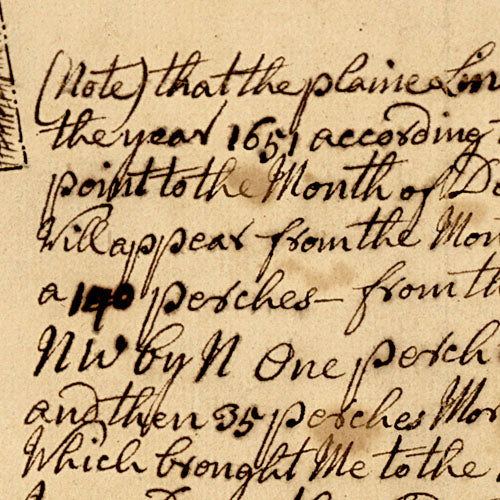 (Note) that the plaine Lin
the year 1651 according
point to the Month of De
Will appear from the Mon
a 190 perches – from th
NW by N One perch
and then 35 perches Mor
Which brought Me to the